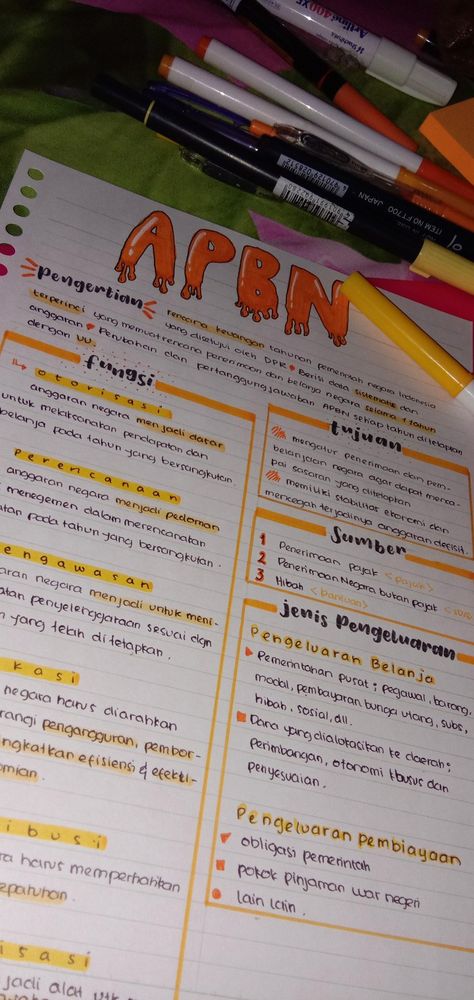 Artline 400XF
ITEM NO.FT700 JAPAN
APBN
Pengertian
rencana keuangan tahunan pemerintah negara Indonesia
yang disetujui oleh DPR Berisi data sistematis dan
terperinci yang memuat rencana penerimaan dan belanja negara selama 1 tahun
anggaran Perubahan dan pertanggungjawaban APBN setiap tahun ditetapkan
dengan UU.
fungsi
otorisasi
anggaran negara menjadi dasar
untuk melaksanakan pendapatan dan
belanja pada tahun yang bersangkutan
perencanaan
anggaran negara menjadi pedoman
menegemen dalam merencanakan
pada tahun yang bersangkutan.
engawasan
negara menjadi untuk meni-
penyelenggaraan sesuai dgn
yang telah ditetapkan.
kasi
negara harus diarahkan
rangi pengangguran, pembor-
ingkatkan efisiensi & efekti-
omian.
ibusi
ra harus memperhatikan
epatuhan.
isasi
jadi alat utk
tujuan
mengatur penerimaan dan pem-
belanjaan negara agar dapat menca-
pai sasaran yang ditetapkan
memiliki stabilitas ekonomi dan
mencegah terjadinya anggaran defisit.
Sumber
1 Penerimaan pajak <pajak>
2 Penerimaan Negara bukan pajak
3 Hibah <bantuan>
jenis Pengeluaran
Pengeluaran Belanja
Pemerintahan pusat; pegawai, barang,
modal, pembayaran bunga utang, subs,
hibah, sosial, dll.
Dana yang dialokasikan ke daerah;
perimbangan, otonomi khusus dan
penyesuaian.
Pengeluaran pembiayaan
obligasi pemerintah
pokok pinjaman luar negeri
lain lain.